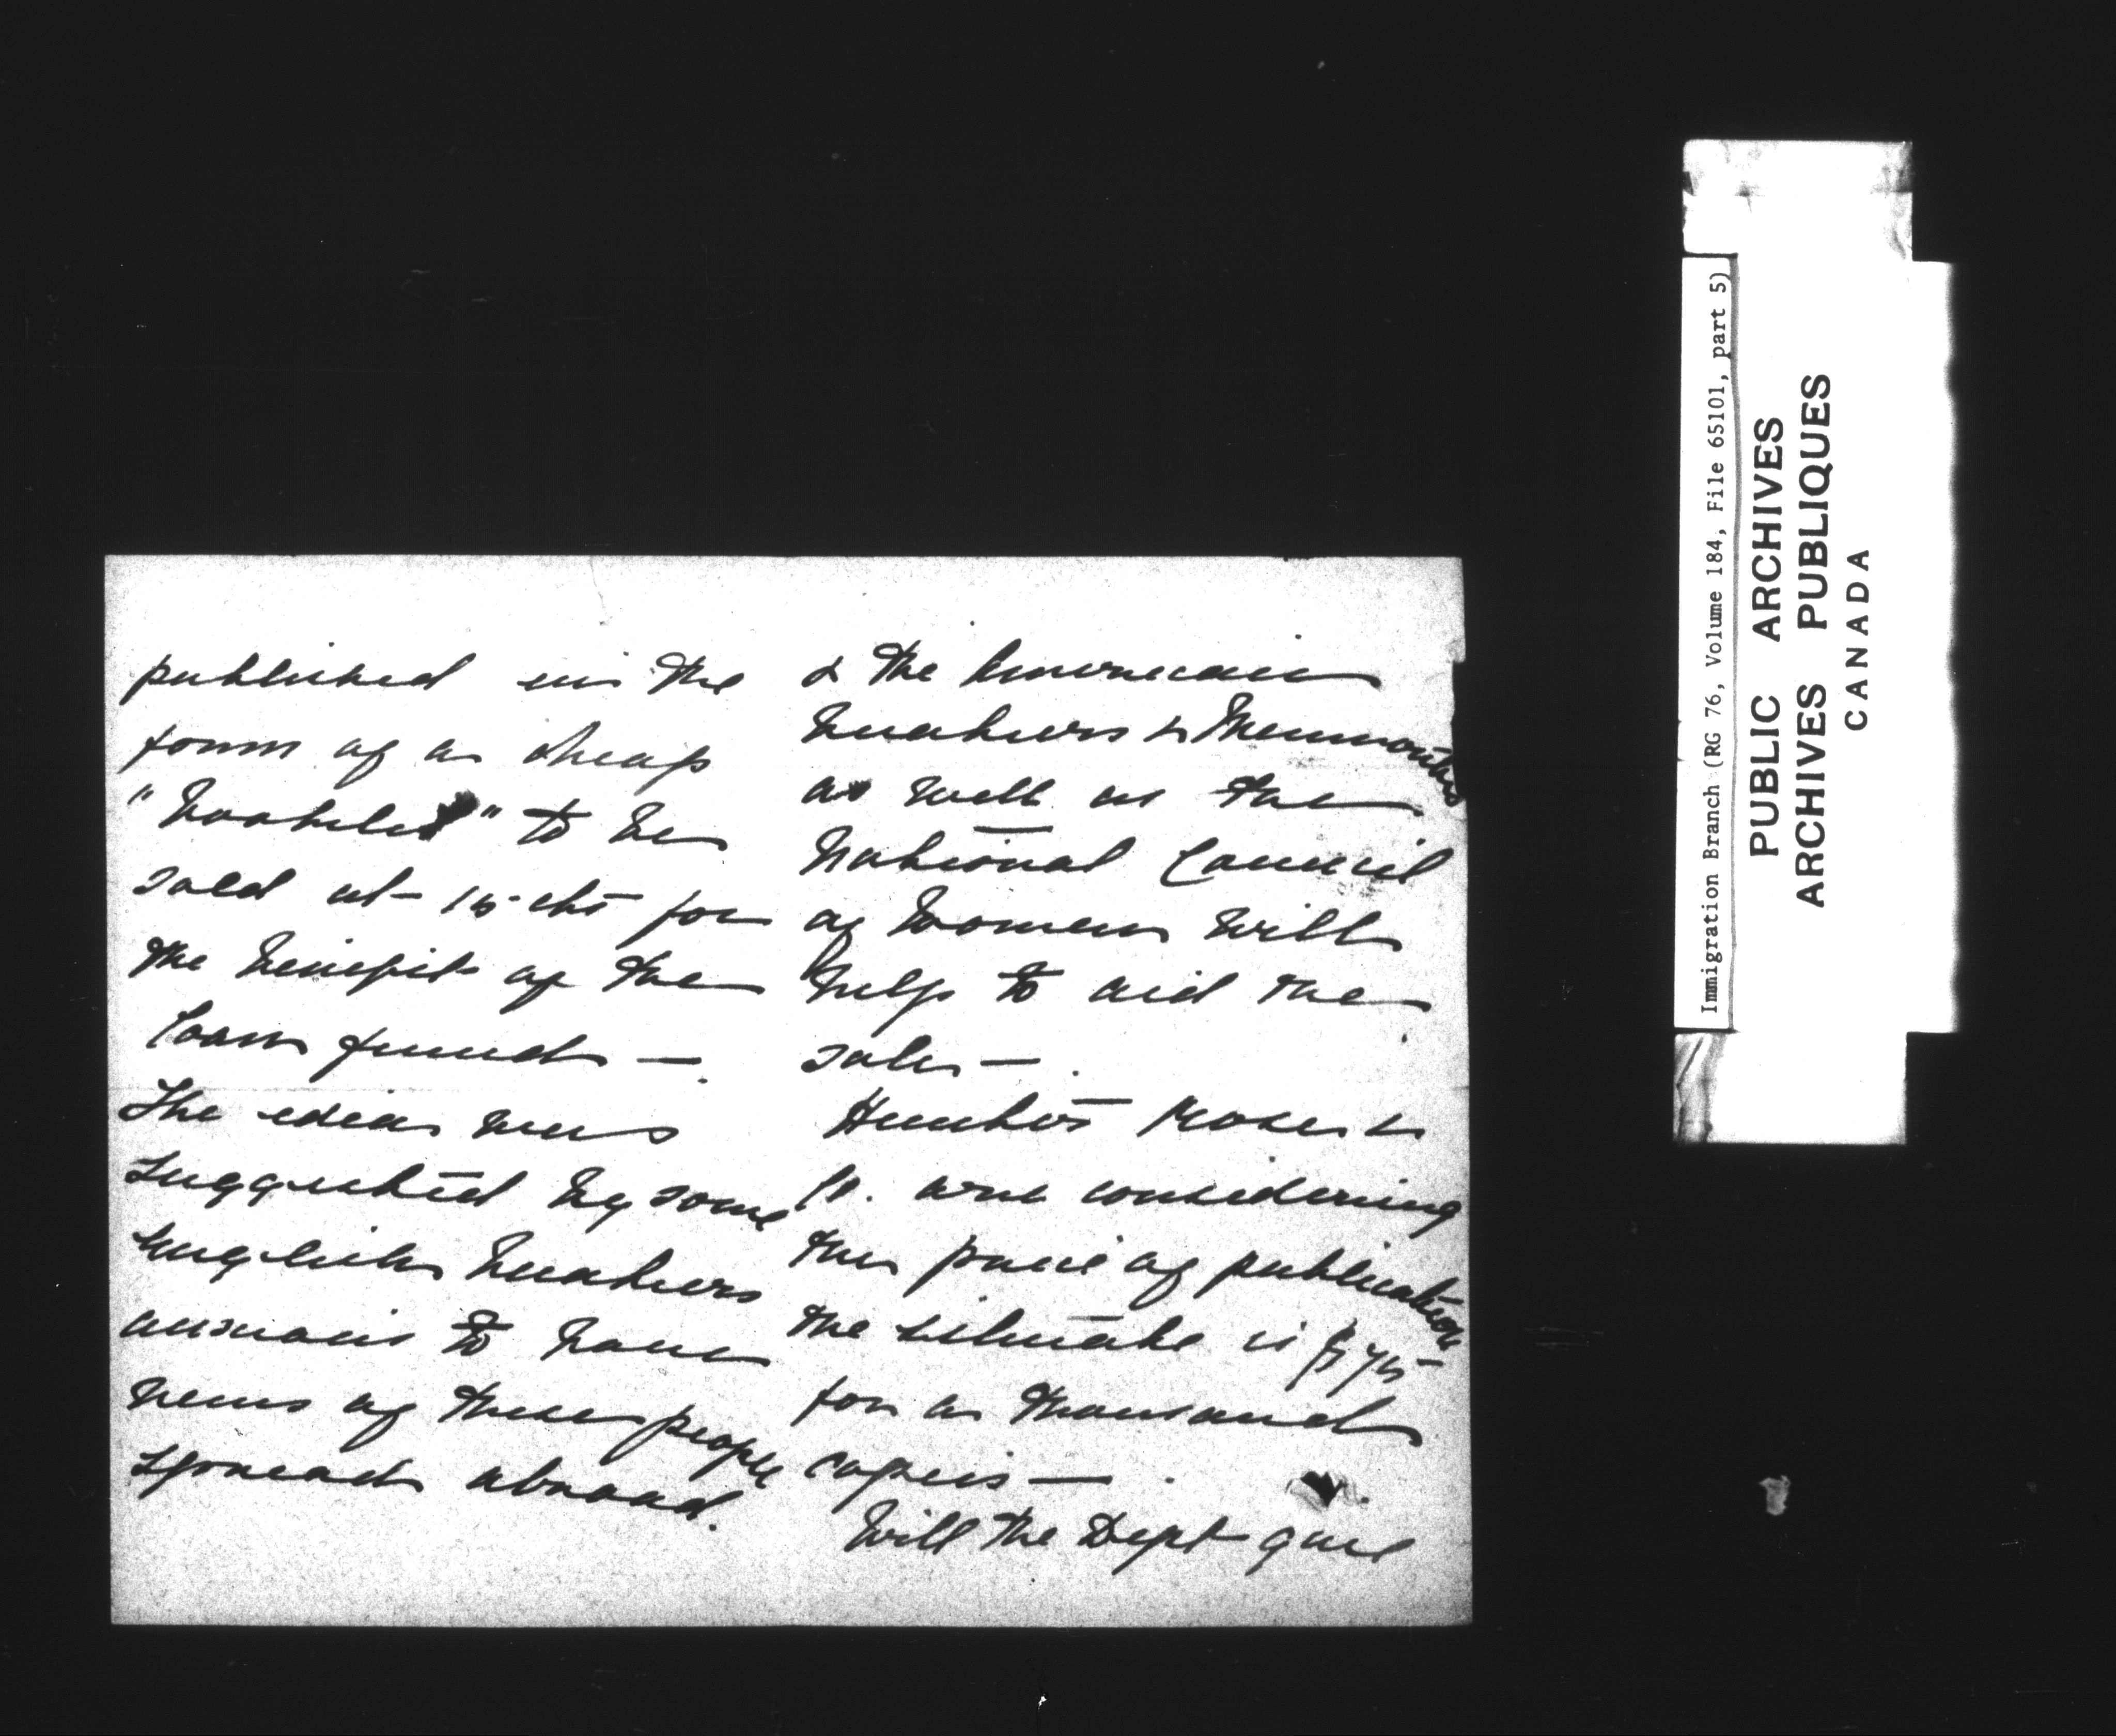 published in the
form of a cheap
"booklet" to be
sold at 15 cts for
the benefit of the
loan fund —.
The idea was
suggested by some
English Quakers
anxious to have
news of these people
spread abroad.
& the American
Quakers & Mennonites
as well as the
National Council
of Women will
help to aid the
sales —.
Hunter Rose &
Co. are considering
the price of publication
the estimate is $75
for a thousand
copies —.
Will the Dept give
Immigration Branch (RG 76, Volume 184, File 65101, part 5)
PUBLIC ARCHIVES
ARCHIVES PUBLIQUES
CANADA